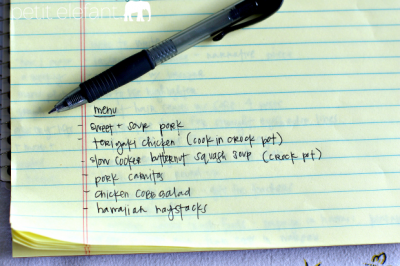 petit elefant
menu
sweet + sour pork
teriyaki chicken (cook in crock pot)
slow cooker butternut squash soup (crock pot)
pork carnitas
chicken cobb salad
hawaiian haystacks